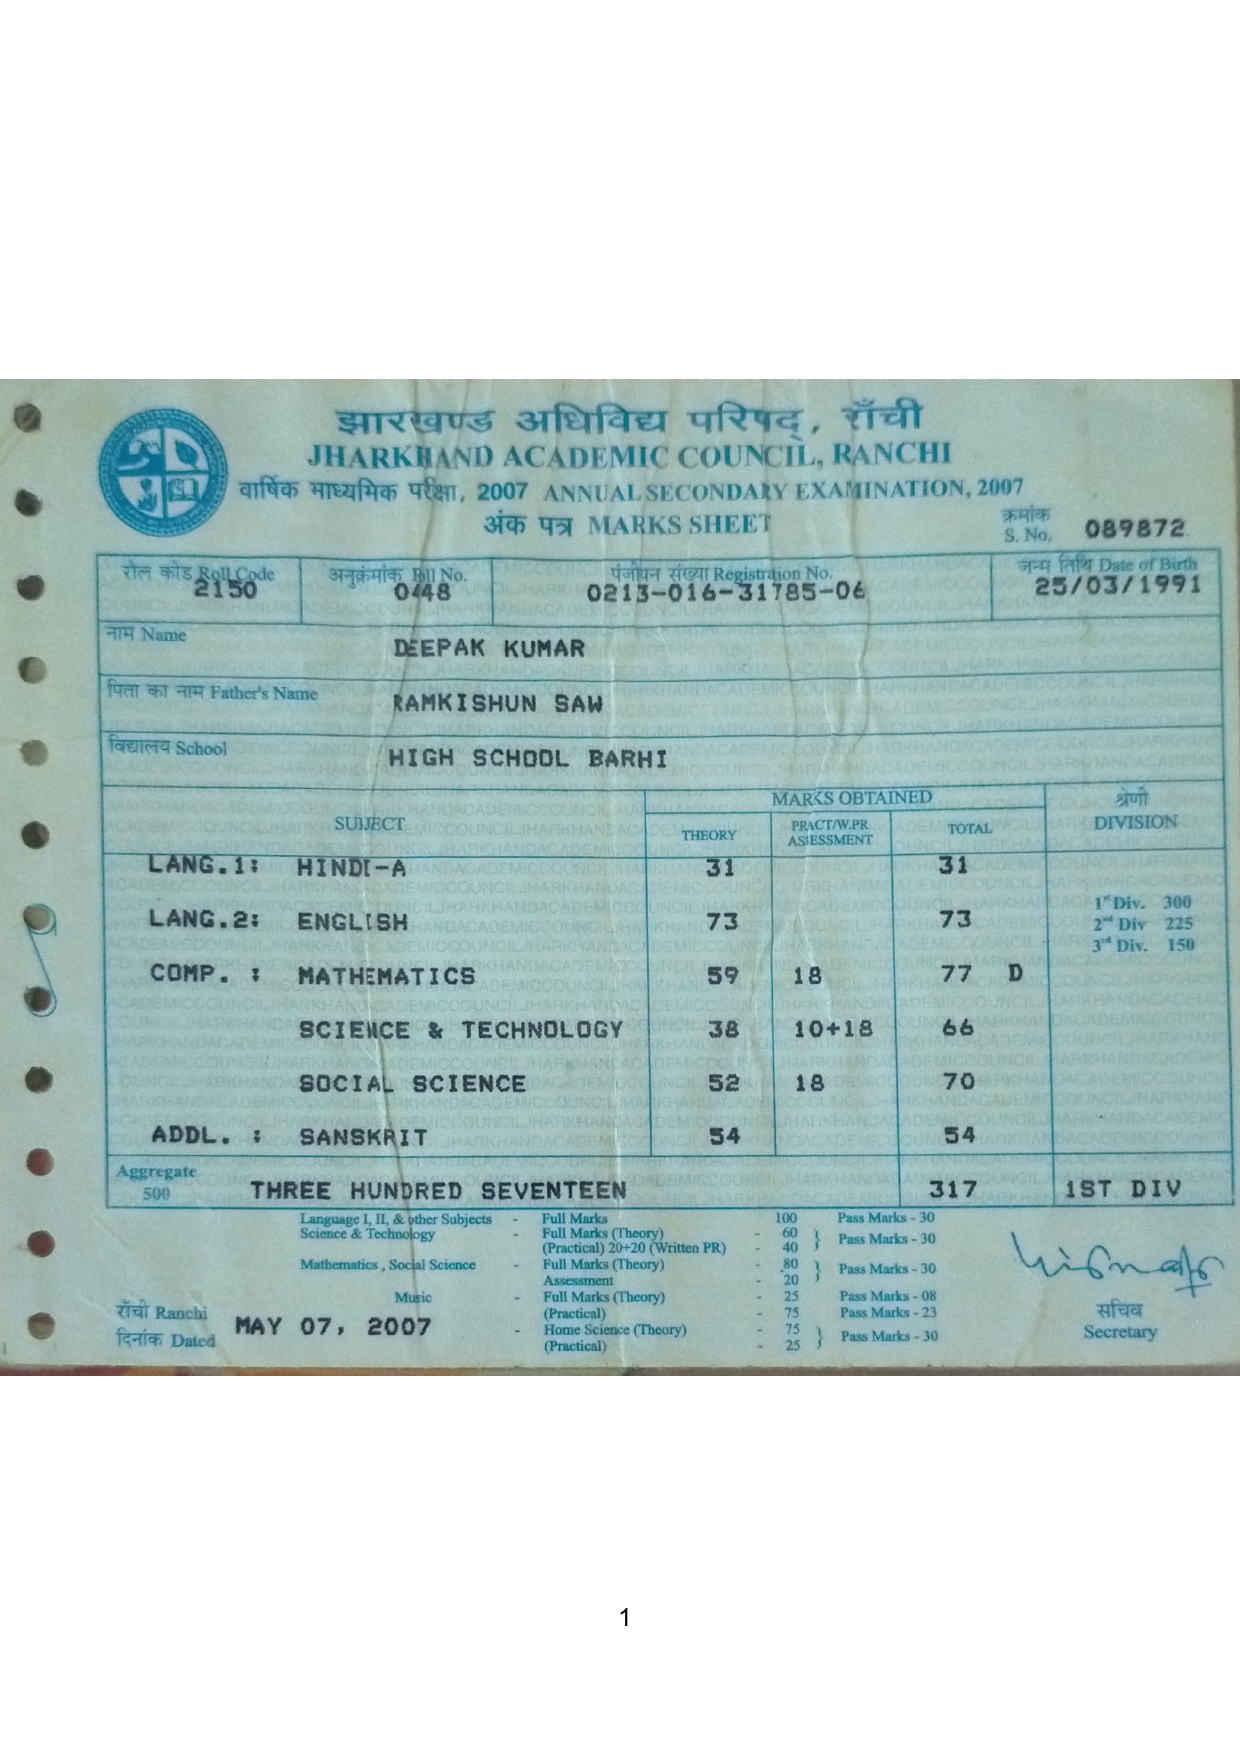 झारखण्ड अधिविद्य परिषद्, राँची
JHARKHAND ACADEMIC COUNCIL, RANCHI
वार्षिक माध्यमिक परीक्षा, 2007 ANNUAL SECONDARY EXAMINATION, 2007
अंक पत्र MARKS SHEET
क्रमांक
S. No. 089872
रौल कोड Roll Code अनुक्रमांक Roll No. पंजीयन संख्या Registration No. जन्म तिथि Date of Birth
2150 0448 0213-016-31785-06 25/03/1991
नाम Name DEEPAK KUMAR
पिता का नाम Father's Name RAMKISHUN SAW
विद्यालय School HIGH SCHOOL BARHI
SUBJECT MARKS OBTAINED श्रेणी
THEORY PRACT/W.PR ASSESSMENT TOTAL DIVISION
LANG.1: HINDI-A 31 31
LANG.2: ENGLISH 73 73
1st Div. 300
2nd Div 225
3rd Div. 150
COMP. : MATHEMATICS 59 18 77 D
SCIENCE & TECHNOLOGY 38 10+18 66
SOCIAL SCIENCE 52 18 70
ADDL. : SANSKRIT 54 54
Aggregate
500 THREE HUNDRED SEVENTEEN 317 1ST DIV
Language I, II, & other Subjects - Full Marks 100 Pass Marks - 30
Science & Technology - Full Marks (Theory) - 60 } Pass Marks - 30
(Practical) 20+20 (Written PR) - 40
Mathematics, Social Science - Full Marks (Theory) - 80 } Pass Marks - 30
Assessment - 20
Music - Full Marks (Theory) - 25 Pass Marks - 08
(Practical) - 75 Pass Marks - 23
- Home Science (Theory) - 75 } Pass Marks - 30
(Practical) - 25
राँची Ranchi
दिनांक Dated MAY 07, 2007
सचिव
Secretary
1